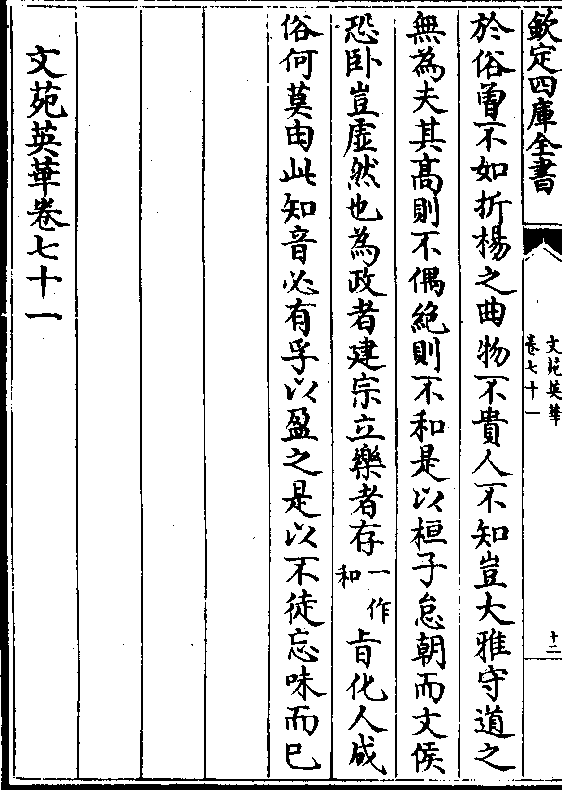 欽定四庫全書
文苑英華
卷七十一
十二
於俗曾不如折楊之曲物不貴人不知豈大雅守道之
無為夫其髙則不偶絶則不和是以桓子怠朝而文侯
恐卧豈虛然也為政者建宗立樂者存一作和旨化人成
俗何莫由此知音必有孚以盈之是以不徒忘味而已
文苑英華卷七十一